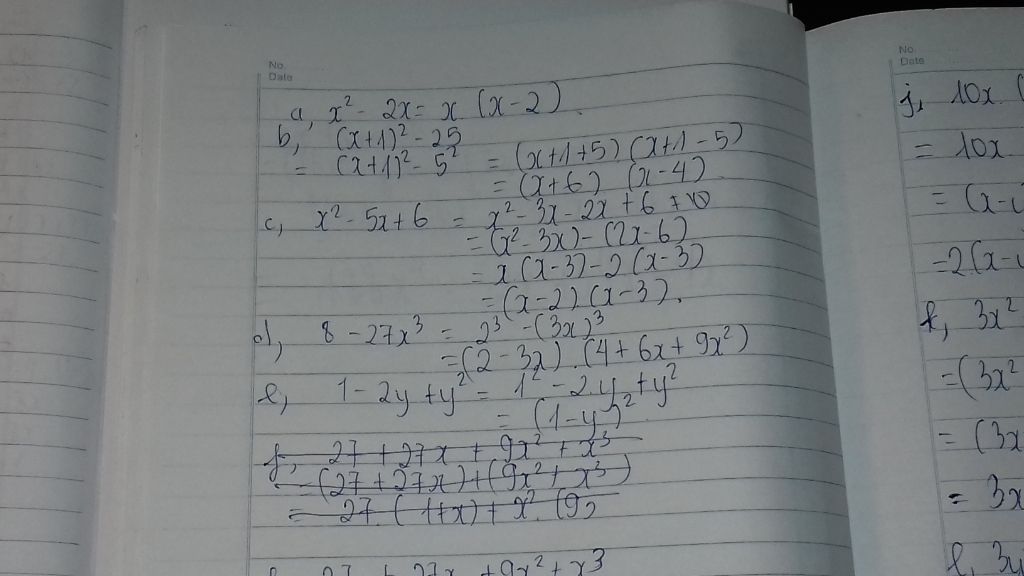 No.
Date
a, x² - 2x = x (x - 2).
b, (x+1)² - 25
= (x+1)² - 5² = (x+1+5) (x+1-5)
= (x+6) (x-4)
c, x² - 5x + 6 = x² - 3x - 2x + 6
= (x² - 3x) - (2x - 6)
= x (x-3) - 2 (x-3)
= (x-2) (x-3).
d, 8 - 27x³ = 2³ - (3x)³
= (2 - 3x). (4 + 6x + 9x²)
e, 1 - 2y + y² = 1² - 2.y + y²
= (1-y)²
f, 27 + 27x + 9x² + x³
= (27 + 27x) + (9x² + x³)
= 27. (1+x) + x². (9
27 + 27x + 9x² + x3
No.
Date
j, 10x (
= 10x
= (x-
= 2(x-
k, 3x²
= (3x²
= (3x
= 3x
l, 3y